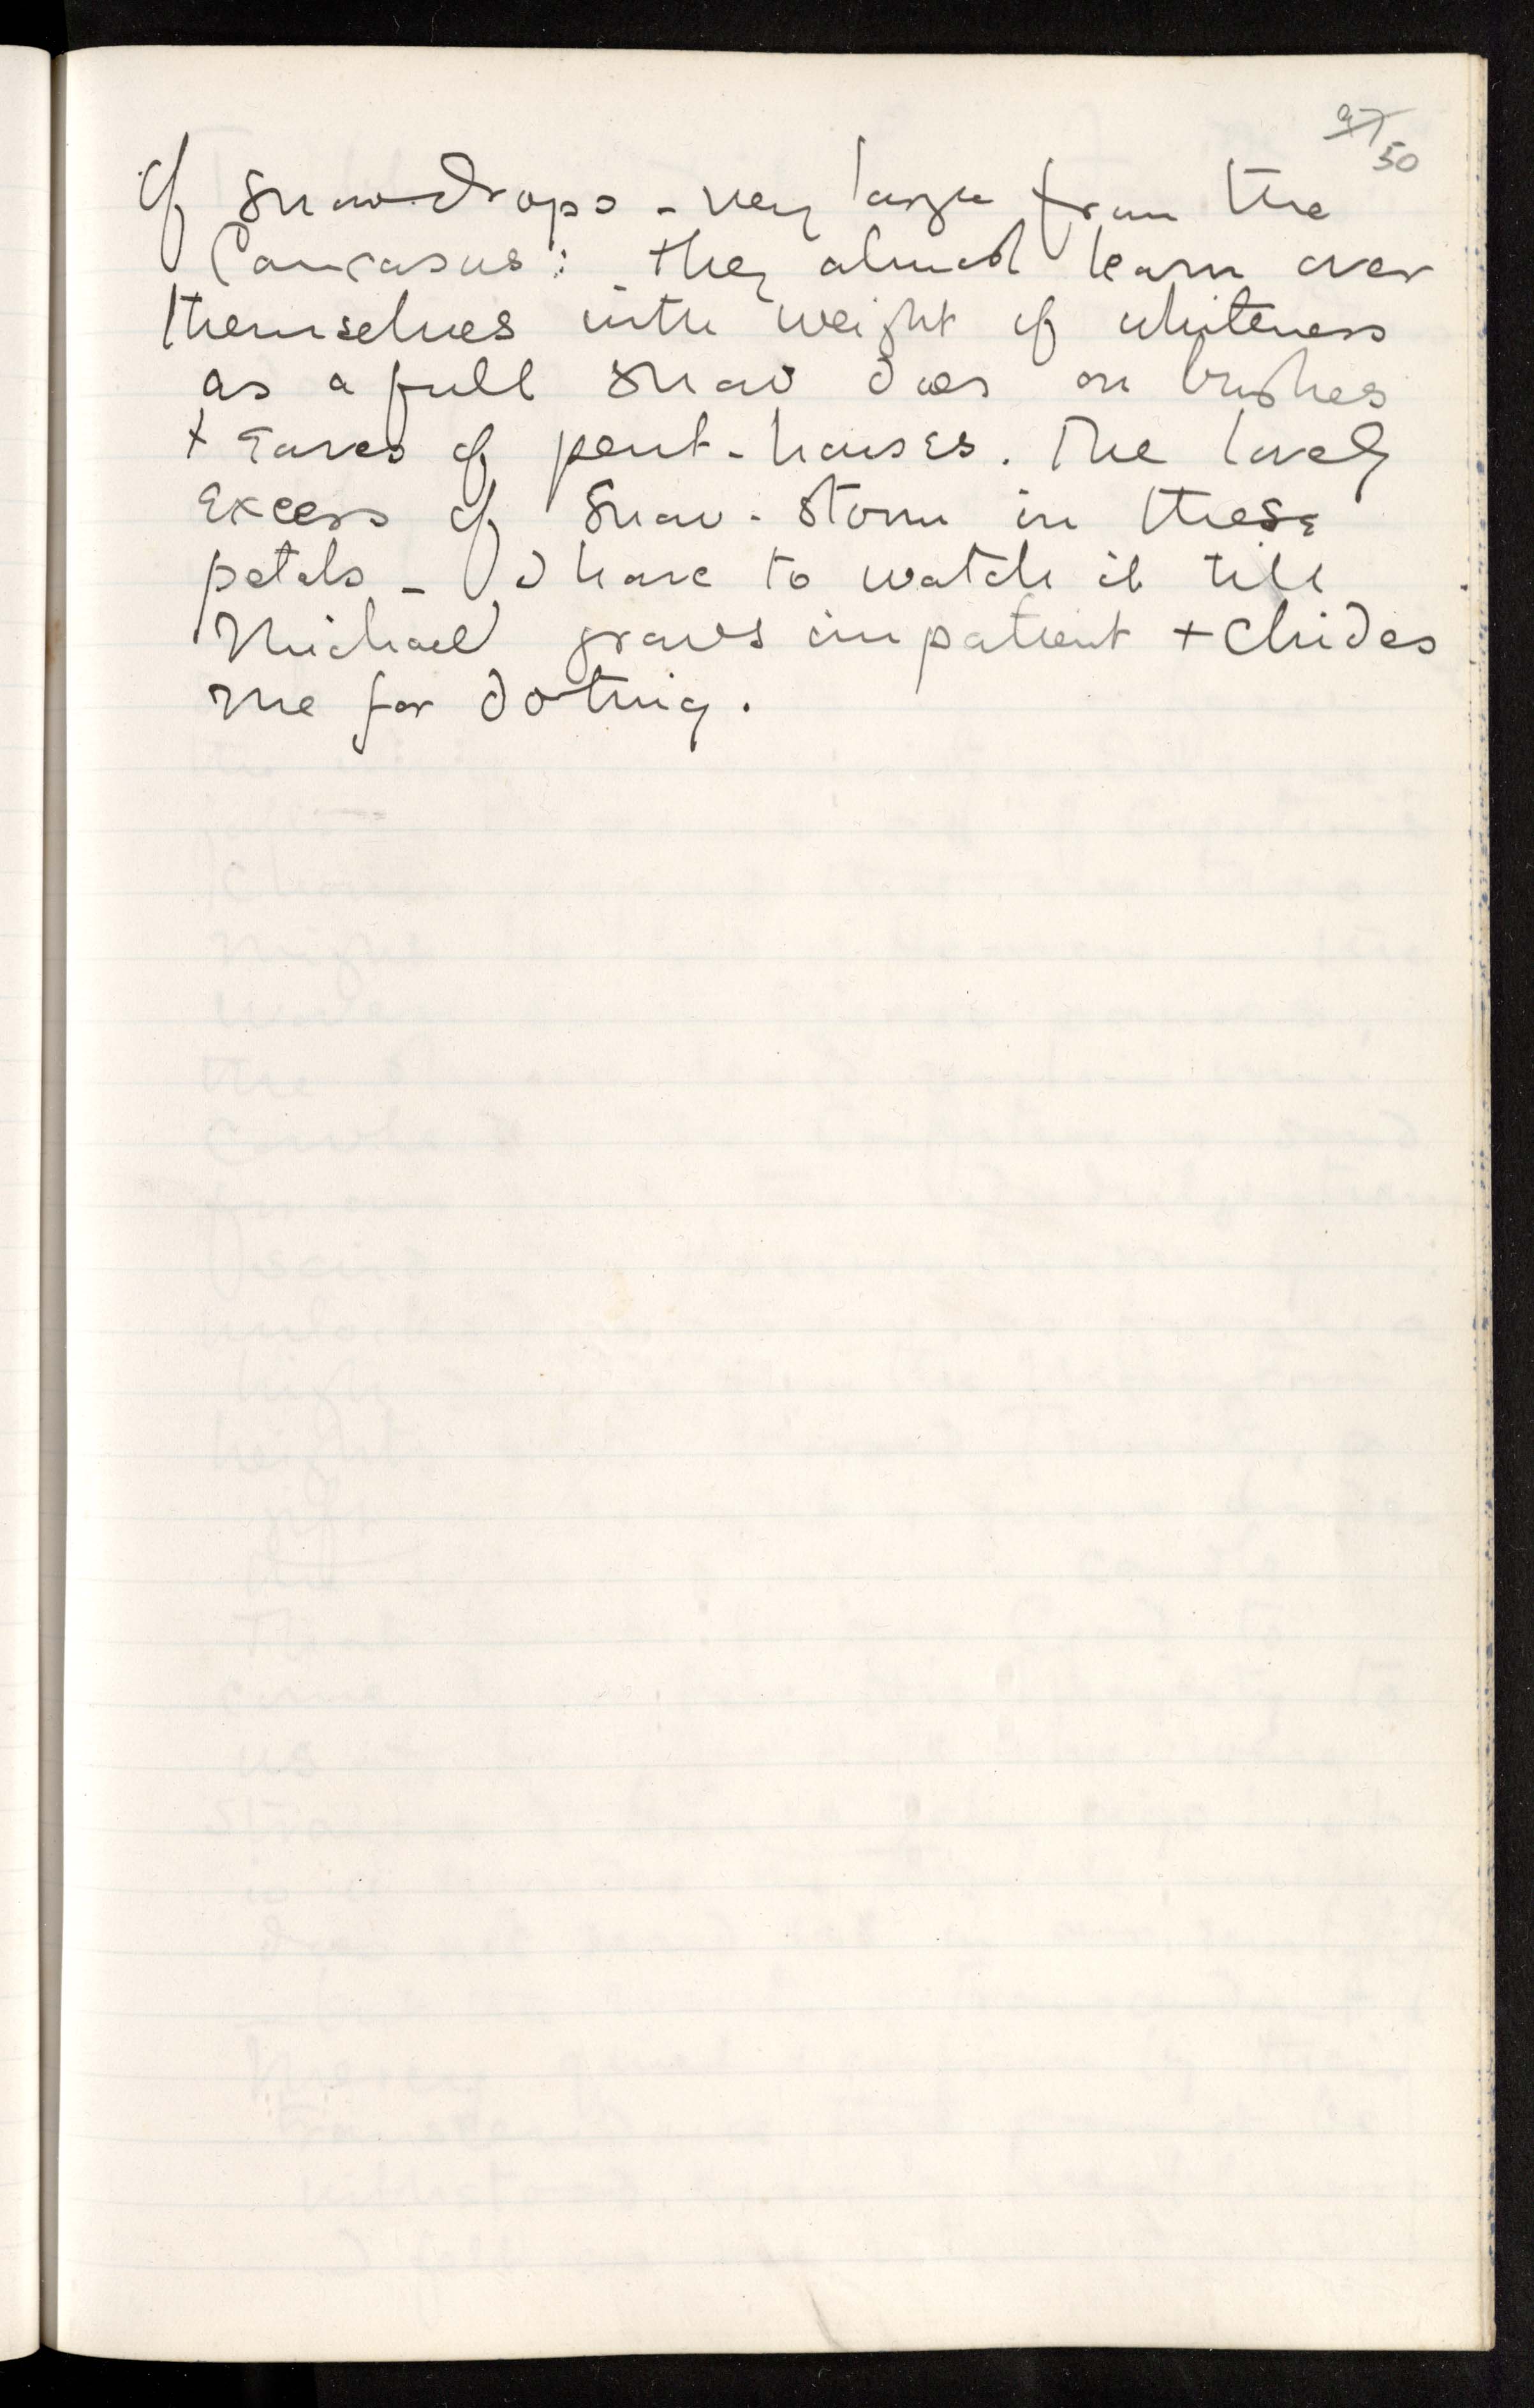 97
50
of Snow-drops - very large from the
Caucasus: they almost lean over
themselves with weight of whiteness
as a full snow does on bushes
+ eaves of pent-houses. The lovely
excess of Snow-storm in these
petals - I have to watch it till
Michael grows impatient + chides
me for doting.